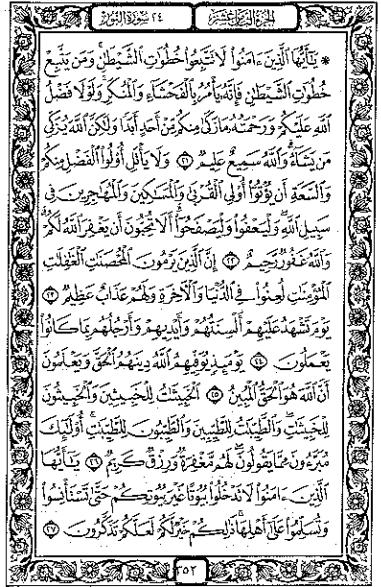 الجزء الثامن عشر ٢٤ سورة النور
* يَٰٓأَيُّهَا ٱلَّذِينَ ءَامَنُوا۟ لَا تَتَّبِعُوا۟ خُطُوَٰتِ ٱلشَّيْطَٰنِ ۚ وَمَن يَتَّبِعْ
خُطُوَٰتِ ٱلشَّيْطَٰنِ فَإِنَّهُۥ يَأْمُرُ بِٱلْفَحْشَآءِ وَٱلْمُنكَرِ ۚ وَلَوْلَا فَضْلُ
ٱللَّهِ عَلَيْكُمْ وَرَحْمَتُهُۥ مَا زَكَىٰ مِنكُم مِّنْ أَحَدٍ أَبَدًا وَلَٰكِنَّ ٱللَّهَ يُزَكِّى
مَن يَشَآءُ ۗ وَٱللَّهُ سَمِيعٌ عَلِيمٌ ٢١ وَلَا يَأْتَلِ أُو۟لُوا۟ ٱلْفَضْلِ مِنكُمْ
وَٱلسَّعَةِ أَن يُؤْتُوٓا۟ أُو۟لِى ٱلْقُرْبَىٰ وَٱلْمَسَٰكِينَ وَٱلْمُهَٰجِرِينَ فِى
سَبِيلِ ٱللَّهِ ۖ وَلْيَعْفُوا۟ وَلْيَصْفَحُوٓا۟ ۗ أَلَا تُحِبُّونَ أَن يَغْفِرَ ٱللَّهُ لَكُمْ ۗ
وَٱللَّهُ غَفُورٌ رَّحِيمٌ ٢٢ إِنَّ ٱلَّذِينَ يَرْمُونَ ٱلْمُحْصَنَٰتِ ٱلْغَٰفِلَٰتِ
ٱلْمُؤْمِنَٰتِ لُعِنُوا۟ فِى ٱلدُّنْيَا وَٱلْءَاخِرَةِ وَلَهُمْ عَذَابٌ عَظِيمٌ ٢٣
يَوْمَ تَشْهَدُ عَلَيْهِمْ أَلْسِنَتُهُمْ وَأَيْدِيهِمْ وَأَرْجُلُهُم بِمَا كَانُوا۟
يَعْمَلُونَ ٢٤ يَوْمَئِذٍ يُوَفِّيهِمُ ٱللَّهُ دِينَهُمُ ٱلْحَقَّ وَيَعْلَمُونَ
أَنَّ ٱللَّهَ هُوَ ٱلْحَقُّ ٱلْمُبِينُ ٢٥ ٱلْخَبِيثَٰتُ لِلْخَبِيثِينَ وَٱلْخَبِيثُونَ
لِلْخَبِيثَٰتِ ۖ وَٱلطَّيِّبَٰتُ لِلطَّيِّبِينَ وَٱلطَّيِّبُونَ لِلطَّيِّبَٰتِ ۚ أُو۟لَٰٓئِكَ
مُبَرَّءُونَ مِمَّا يَقُولُونَ ۖ لَهُم مَّغْفِرَةٌ وَرِزْقٌ كَرِيمٌ ٢٦ يَٰٓأَيُّهَا
ٱلَّذِينَ ءَامَنُوا۟ لَا تَدْخُلُوا۟ بُيُوتًا غَيْرَ بُيُوتِكُمْ حَتَّىٰ تَسْتَأْنِسُوا۟
وَتُسَلِّمُوا۟ عَلَىٰٓ أَهْلِهَا ۚ ذَٰلِكُمْ خَيْرٌ لَّكُمْ لَعَلَّكُمْ تَذَكَّرُونَ ٢٧
٣٥٢